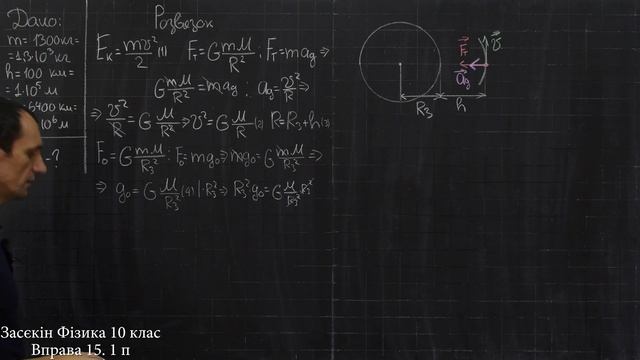 Дано:
m=1300кг=
=1,3·10³кг
h=100 км=
=1·10⁵м
6400км=
10⁶м
-?
Розвязок
Eк=mv²/2 (1) Fт=G mM/R²; Fт=mag⇒
G mM/R²=mag; ag=v²/R
⇒ v²/R=G M/R²⇒v²=G M/R (2) R=R₃+h (3)
F₀=G mM/R₃²; F₀=mg₀⇒mg₀=G mM/R₃²⇒
⇒ g₀=G M/R₃² (4) |·R₃²⇒ R₃²g₀=G M/R₃²·R₃²
Fт
ag
v
R₃
h
Засєкін Фізика 10 клас
Вправа 15. 1 п